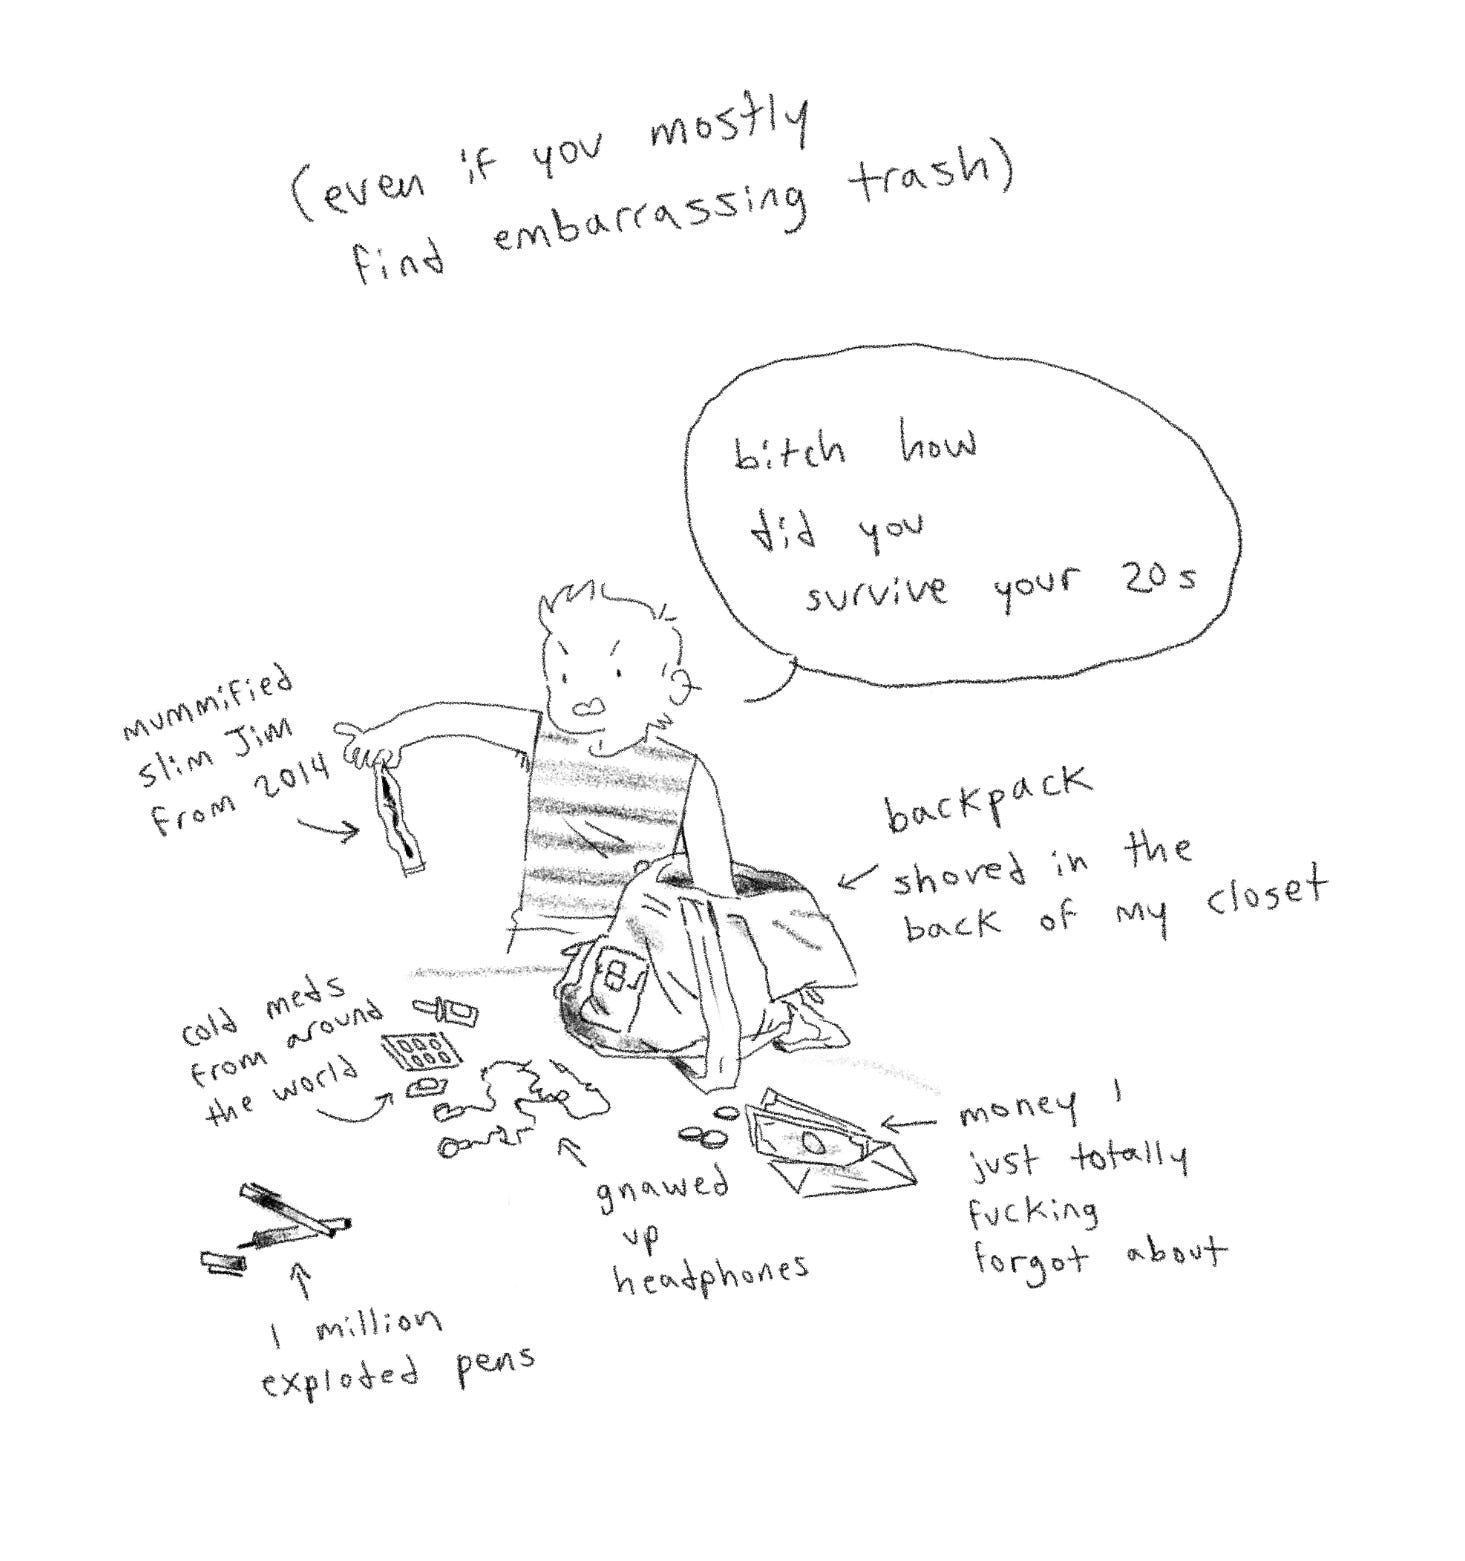 (even if you mostly
find embarrassing trash)
bitch how
did you
survive your 20s
mummified
slim Jim
from 2014
backpack
shoved in the
back of my closet
cold meds
from around
the world
money I
just totally
fucking
forgot about
gnawed
up
headphones
1 million
exploded pens